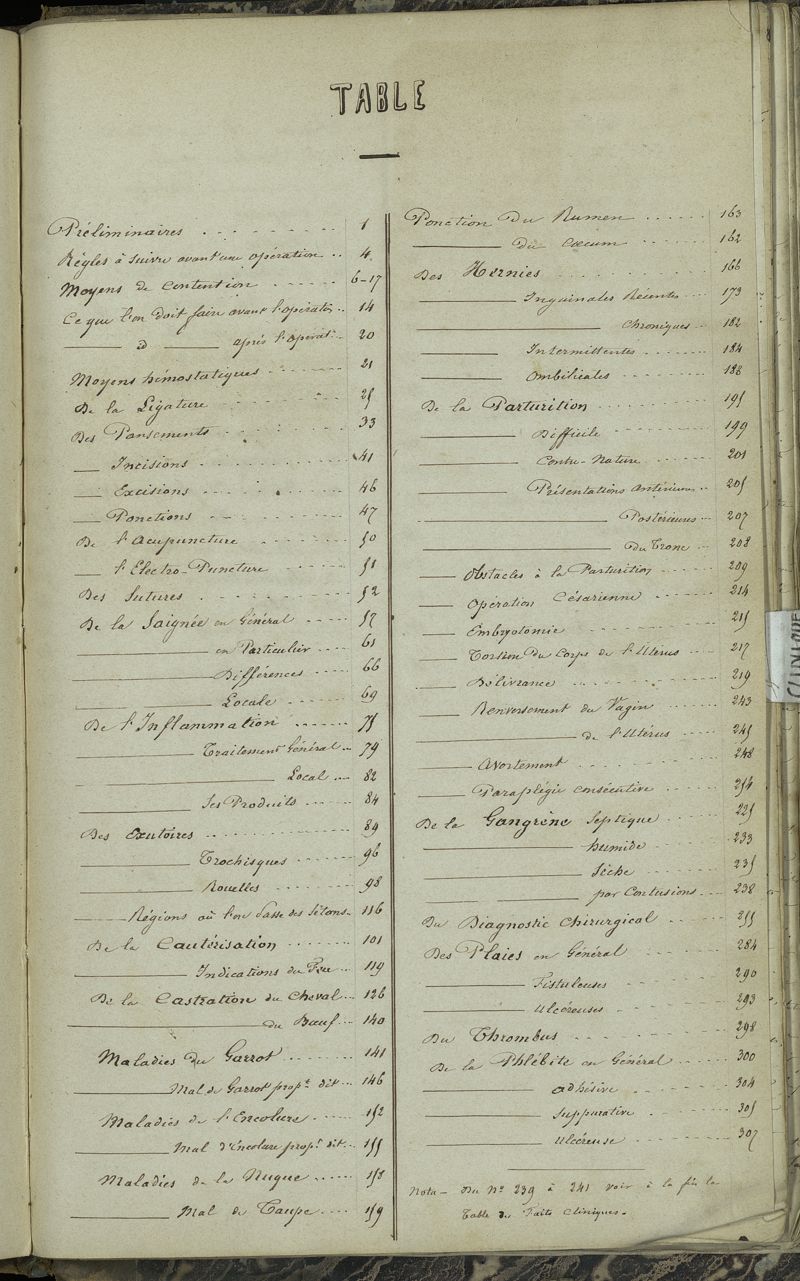 TABLE
Préliminaires 1
Règles à suivre avant une opération 4
Moyens de Contention 6-17
Ce que l'on doit faire avant l'opératn 14
d après l'opérat. 20
Moyens hémostatiques 21
De la Ligature 25
Des Pansements 33
Incisions 41
Excisions 46
Ponctions 47
De l'Acupuncture 50
l'Electro-Puncture 51
Des Sutures 52
De la Saignée en Général 57
en Particulier 61
Différences 66
Locale 69
De l'Inflammation 75
Traitement Général 79
Local 82
Ses Produits 84
Des Exutoires 89
Trochisques 96
Rouelles 98
Régions où l'on Passe des Sétons 116
De la Cautérisation 101
Indications du Feu 119
De la Castration du Cheval 126
du Bœuf 140
Maladies du Garrot 141
Mal de Garrot propt dit 146
Maladies de l'Encolure 152
Mal d'Encolure propt dit 155
Maladies de la Nuque 158
Mal de Taupe 159
Ponction du Rumen 163
du Cœcum 162
Des Hernies 166
Inguinales Récentes 173
Chroniques 182
Intermittentes 184
Ombilicales 188
De la Parturition 195
Difficile 199
Contre-Nature 201
Présentations Antérieures 205
Postérieures 207
du Tronc 208
Obstacles à la Parturition 209
Opération Césarienne 214
Embryotomie 215
Torsion du Corps de l'Utérus 217
Délivrance 219
Renversement du Vagin 243
de l'Utérus 245
Avortement 248
Paraplégie consécutive 254
De la Gangrène Septique 225
humide 233
Sèche 235
par Contusions 238
Du Diagnostic Chirurgical 255
Des Plaies en Général 284
Fistuleuses 290
Ulcéreuses 293
Du Thrombus 298
De la Phlébite en Général 300
adhésive 304
Suppurative 305
Ulcéreuse 307
Nota - Du No 239 à 241 voir à la fin la
Table des Faits Cliniques.
CLINIQUE